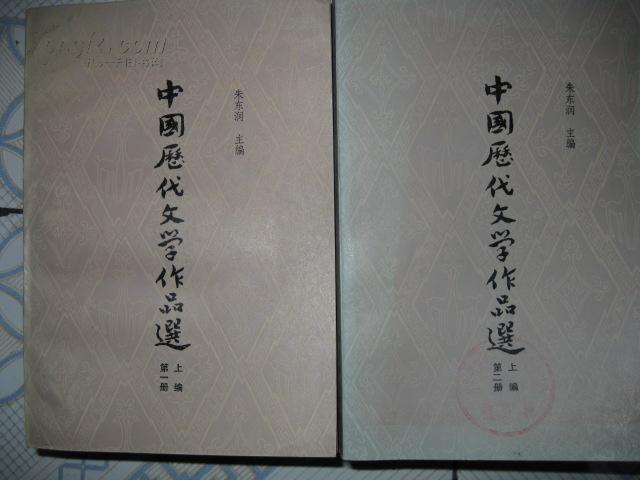 朱东润 主编
中國歷代文学作品選
上编
第一册
朱东润 主编
中國歷代文学作品選
上编
第二册